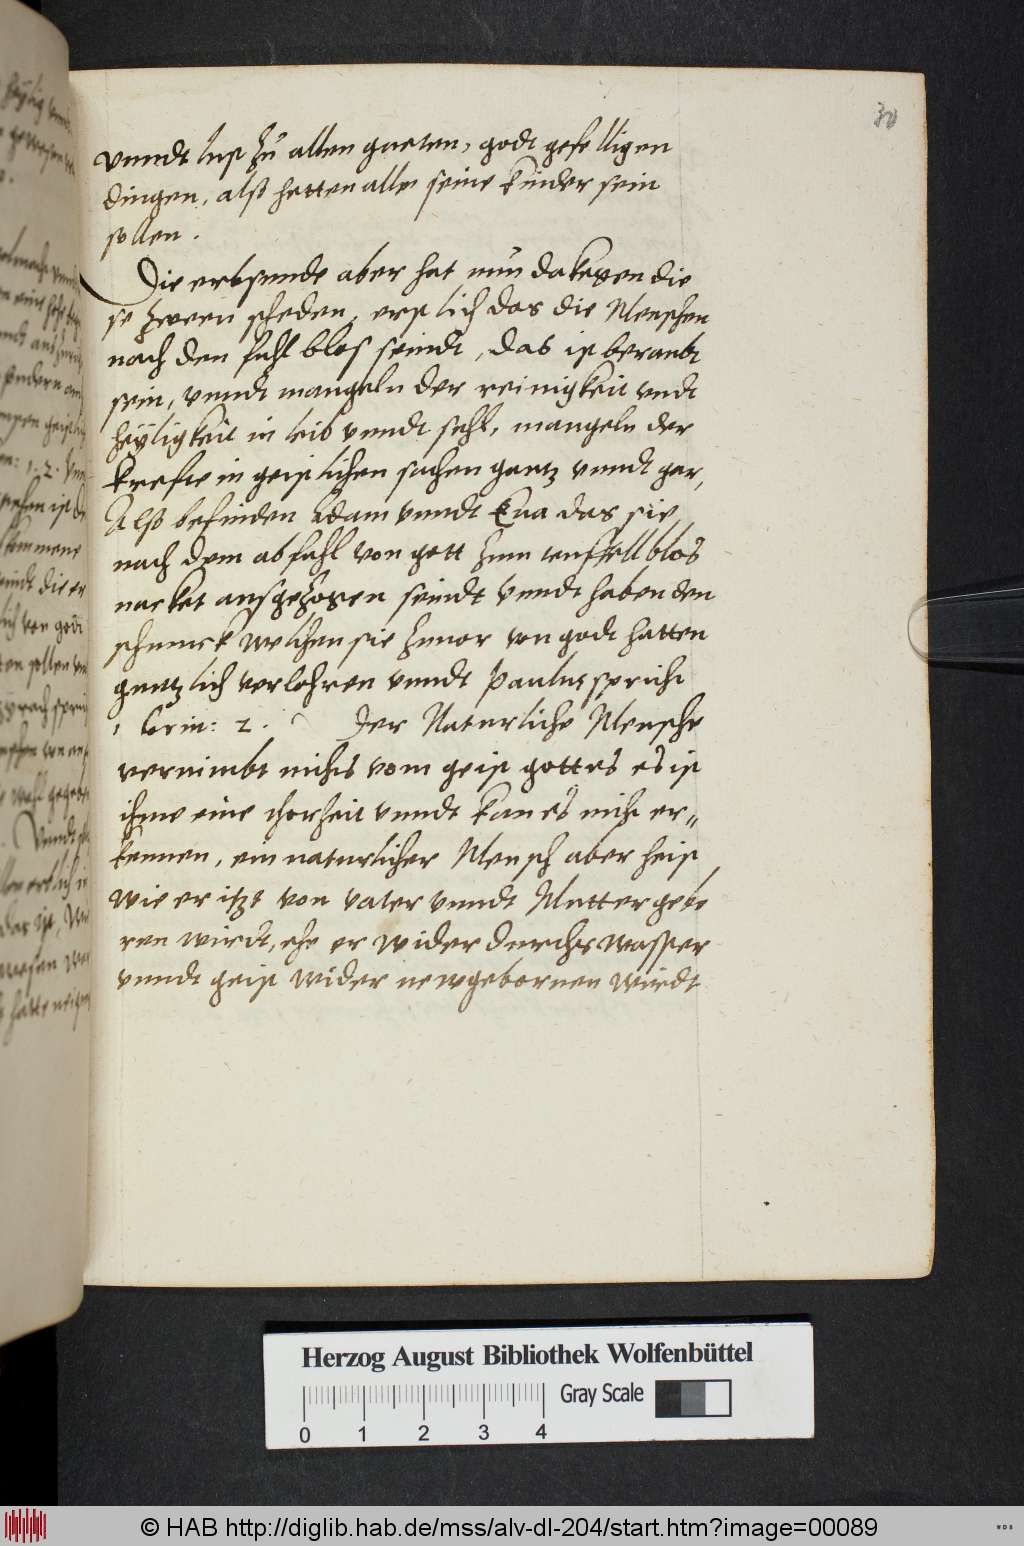 30
vnndt lust zů allen gueten, godt gefelligen
dingen, alß hetten alle seine kinder sein
sollen.
Die erbsunde aber hat nŭn dakegen die
se zween scheden, erstlich das die Menschen
nach den fahl blos seindt, das ist beraubt
sein, vnndt mangeln der reinigkeit vndt
heÿligkeit in leib vnndt sehl, mangeln der
krefte in geistlichen sachen gantz vnndt gar,
Alß befinden Adam vnndt Eua das sie
nach dem abfahl von gott zum teuffell blos
nacket ausgezogen seindt vnndt haben den
schmuck welchen sie zuuor von godt hatten
gentzlich verlohren vnndt Paulus spricht
1 Corin: 2. Der Naturliche Mensche
vernimbt nichts vom geist gottes es ist
ihme eine thorheit vnndt kan es nicht er„
kennen, ein naturlicher Mensch aber heist
wie er itzt von vater vnndt Mutter gebo
ren wirdt, ehe er wider durchs wasser
vnndt geist wider newgebornen wirdt
Herzog August Bibliothek Wolfenbüttel
Gray Scale
0 1 2 3 4
© HAB http://diglib.hab.de/mss/alv-dl-204/start.htm?image=00089